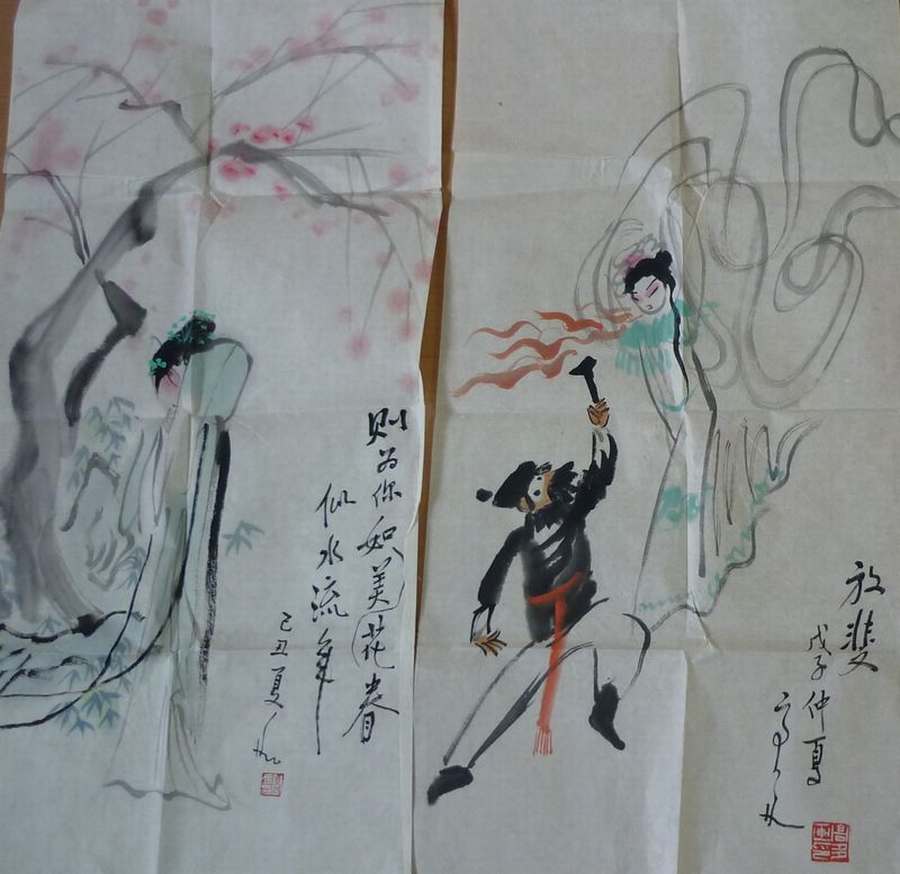 则为你如美花眷
似水流年
己丑夏
放斐
戊子仲夏